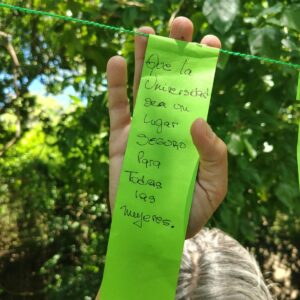 Que la
Universidad
sea un
lugar
seguro
Para
Todas
las
mujeres.